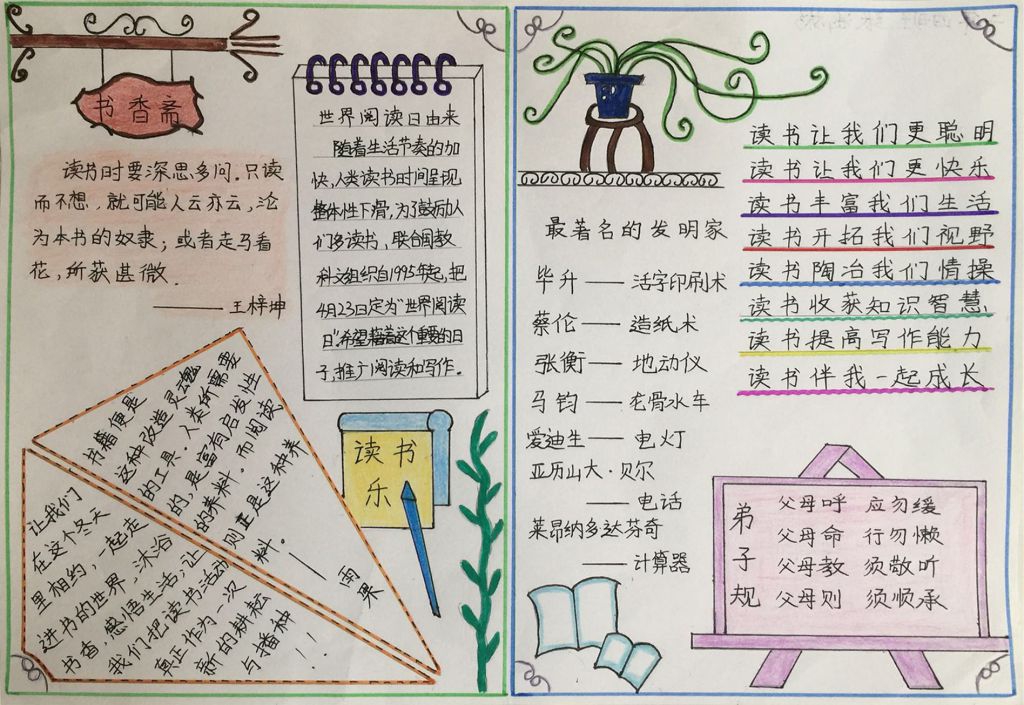 书香斋
读书时要深思多问。只读
而不想，就可能人云亦云，沦
为本书的奴隶；或者走马看
花，所获甚微．
——王梓坤
世界阅读日由来
随着生活节奏的加
快，人类读书时间呈现
整体性下滑，为了鼓励人
们多读书，联合国教
科文组织自1995年起，把
4月23日定为"世界阅读
日"．希望藉着这个重要的日
子，推广阅读和写作。
书籍便是
这种改造灵魂
的工具．人类所需要
的，是富有启发性
的养料．而阅读
则正是这种养
料．
——雨果
让我们
在这个冬天
里相约，一起走
进书的世界，沐浴
书香，感悟生活；让
我们把读书活动
真正作为一次
新的耕耘
与播种
！！
读书
乐
最著名的发明家
毕升——活字印刷术
蔡伦——造纸术
张衡——地动仪
马钧——龙骨水车
爱迪生——电灯
亚历山大·贝尔
——电话
莱昂纳多达芬奇
——计算器
读书让我们更聪明
读书让我们更快乐
读书丰富我们生活
读书开拓我们视野
读书陶冶我们情操
读书收获知识智慧
读书提高写作能力
读书伴我一起成长
弟子规
父母呼 应勿缓
父母命 行勿懒
父母教 须敬听
父母则 须顺承